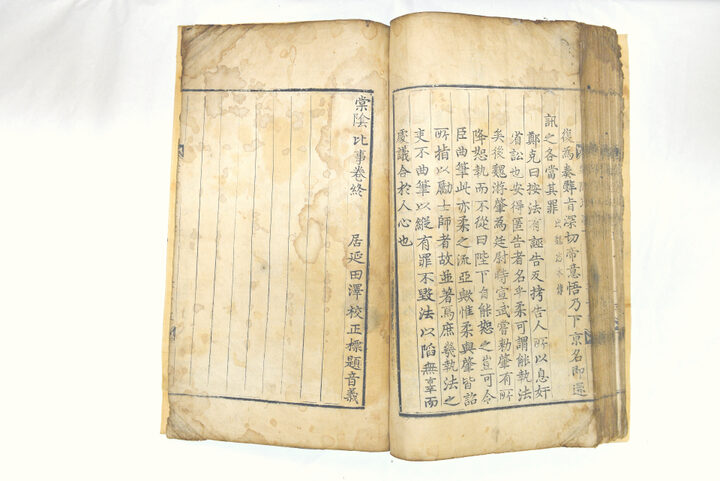 復為奏辭旨深切帝意悟乃下京名即還
訊之各當其罪 出魏志本傳
鄭克曰按法有誣告反拷告人所以息奸
省訟也安得匿告者名乎柔可謂能執法
矣後魏游肇為廷尉時宣武嘗勑肇有所
降恕執而不從曰陛下自能恕之豈可令
臣曲筆此亦柔之流亞歟惟柔與肇皆詔
所指以勵士師者故並著焉庶幾執法之
吏不曲筆以縱有罪不毀法以陷無辜而
處議合於人心也
棠陰比事卷終
居延田澤校正標題音義